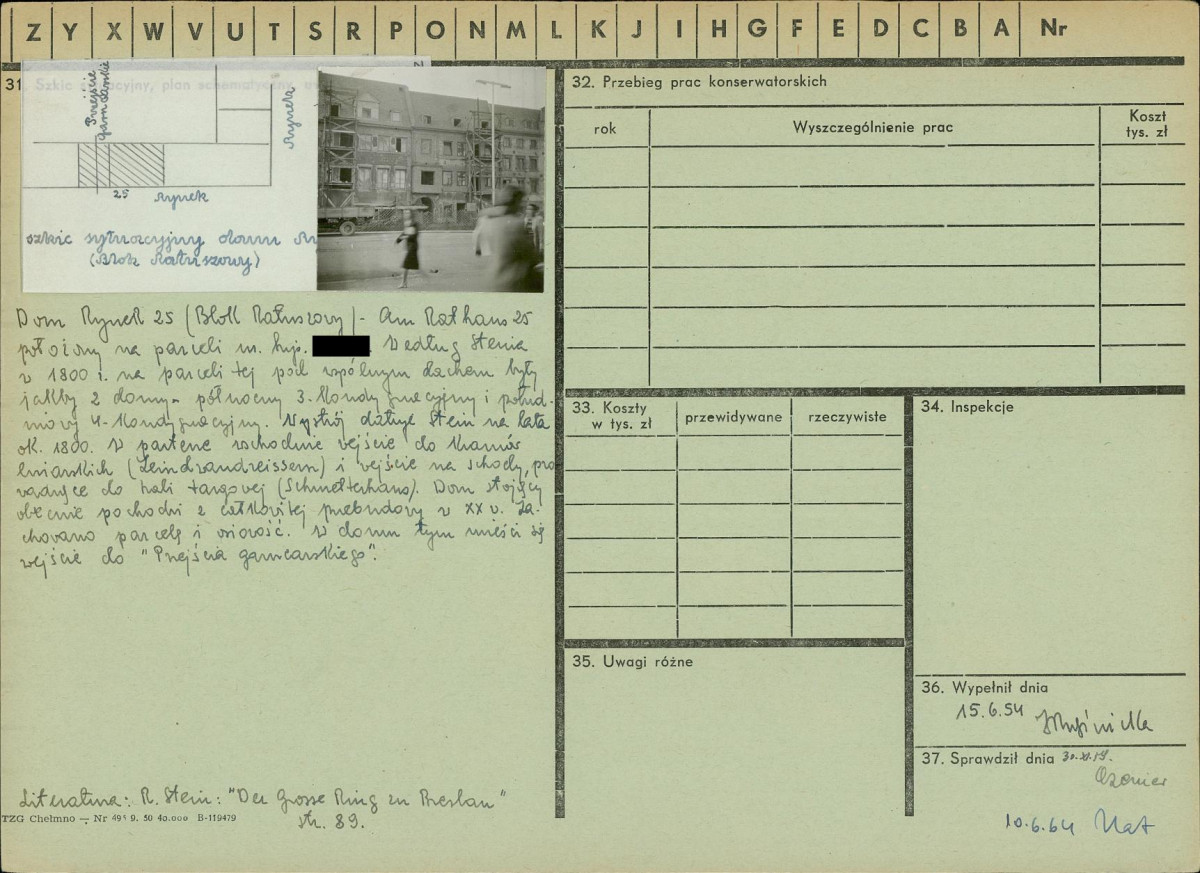 Z Y X W V U T S R P O N M L K J I H G F E D C B A Nr
31
Szkic sytuacyjny, plan schematyczny
N
Przejście
garncarskie
Rynek
25 Rynek
szkic sytuacyjny domu
(Blok Ratuszowy)
Dom Rynek 25 (Blok Ratuszowy) - Am Rathaus 25
położony na parceli nr. hip. Według Steina
w 1800 r. na parceli tej pod wspólnym dachem były
jakby 2 domy - północny 3-kondygnacyjny i połud-
niowy 4-kondygnacyjny. Wystrój datuje Stein na lata
ok. 1800. W parterze wschodnie wejście do kramów
lniarskich (Leindwandreissern) i wejście na schody, pro
wadzące do hali targowej (Schmetterhaus). Dom stojący
obecnie pochodzi z całkowitej przebudowy w XX w. Za-
chowano parcelę i osiowość. W domu tym mieści się
wejście do "Przejścia garncarskiego".
Literatura: R. Stein: "Der Grosse Ring zu Breslau"
str. 89.
TZG Chełmno — Nr 49 9. 50 40.000 B-119479
32. Przebieg prac konserwatorskich
rok Wyszczególnienie prac Koszt
tys. zł
33. Koszty
w tys. zł przewidywane rzeczywiste
34. Inspekcje
35. Uwagi różne
36. Wypełnił dnia
15.6.54
37. Sprawdził dnia
10.6.64